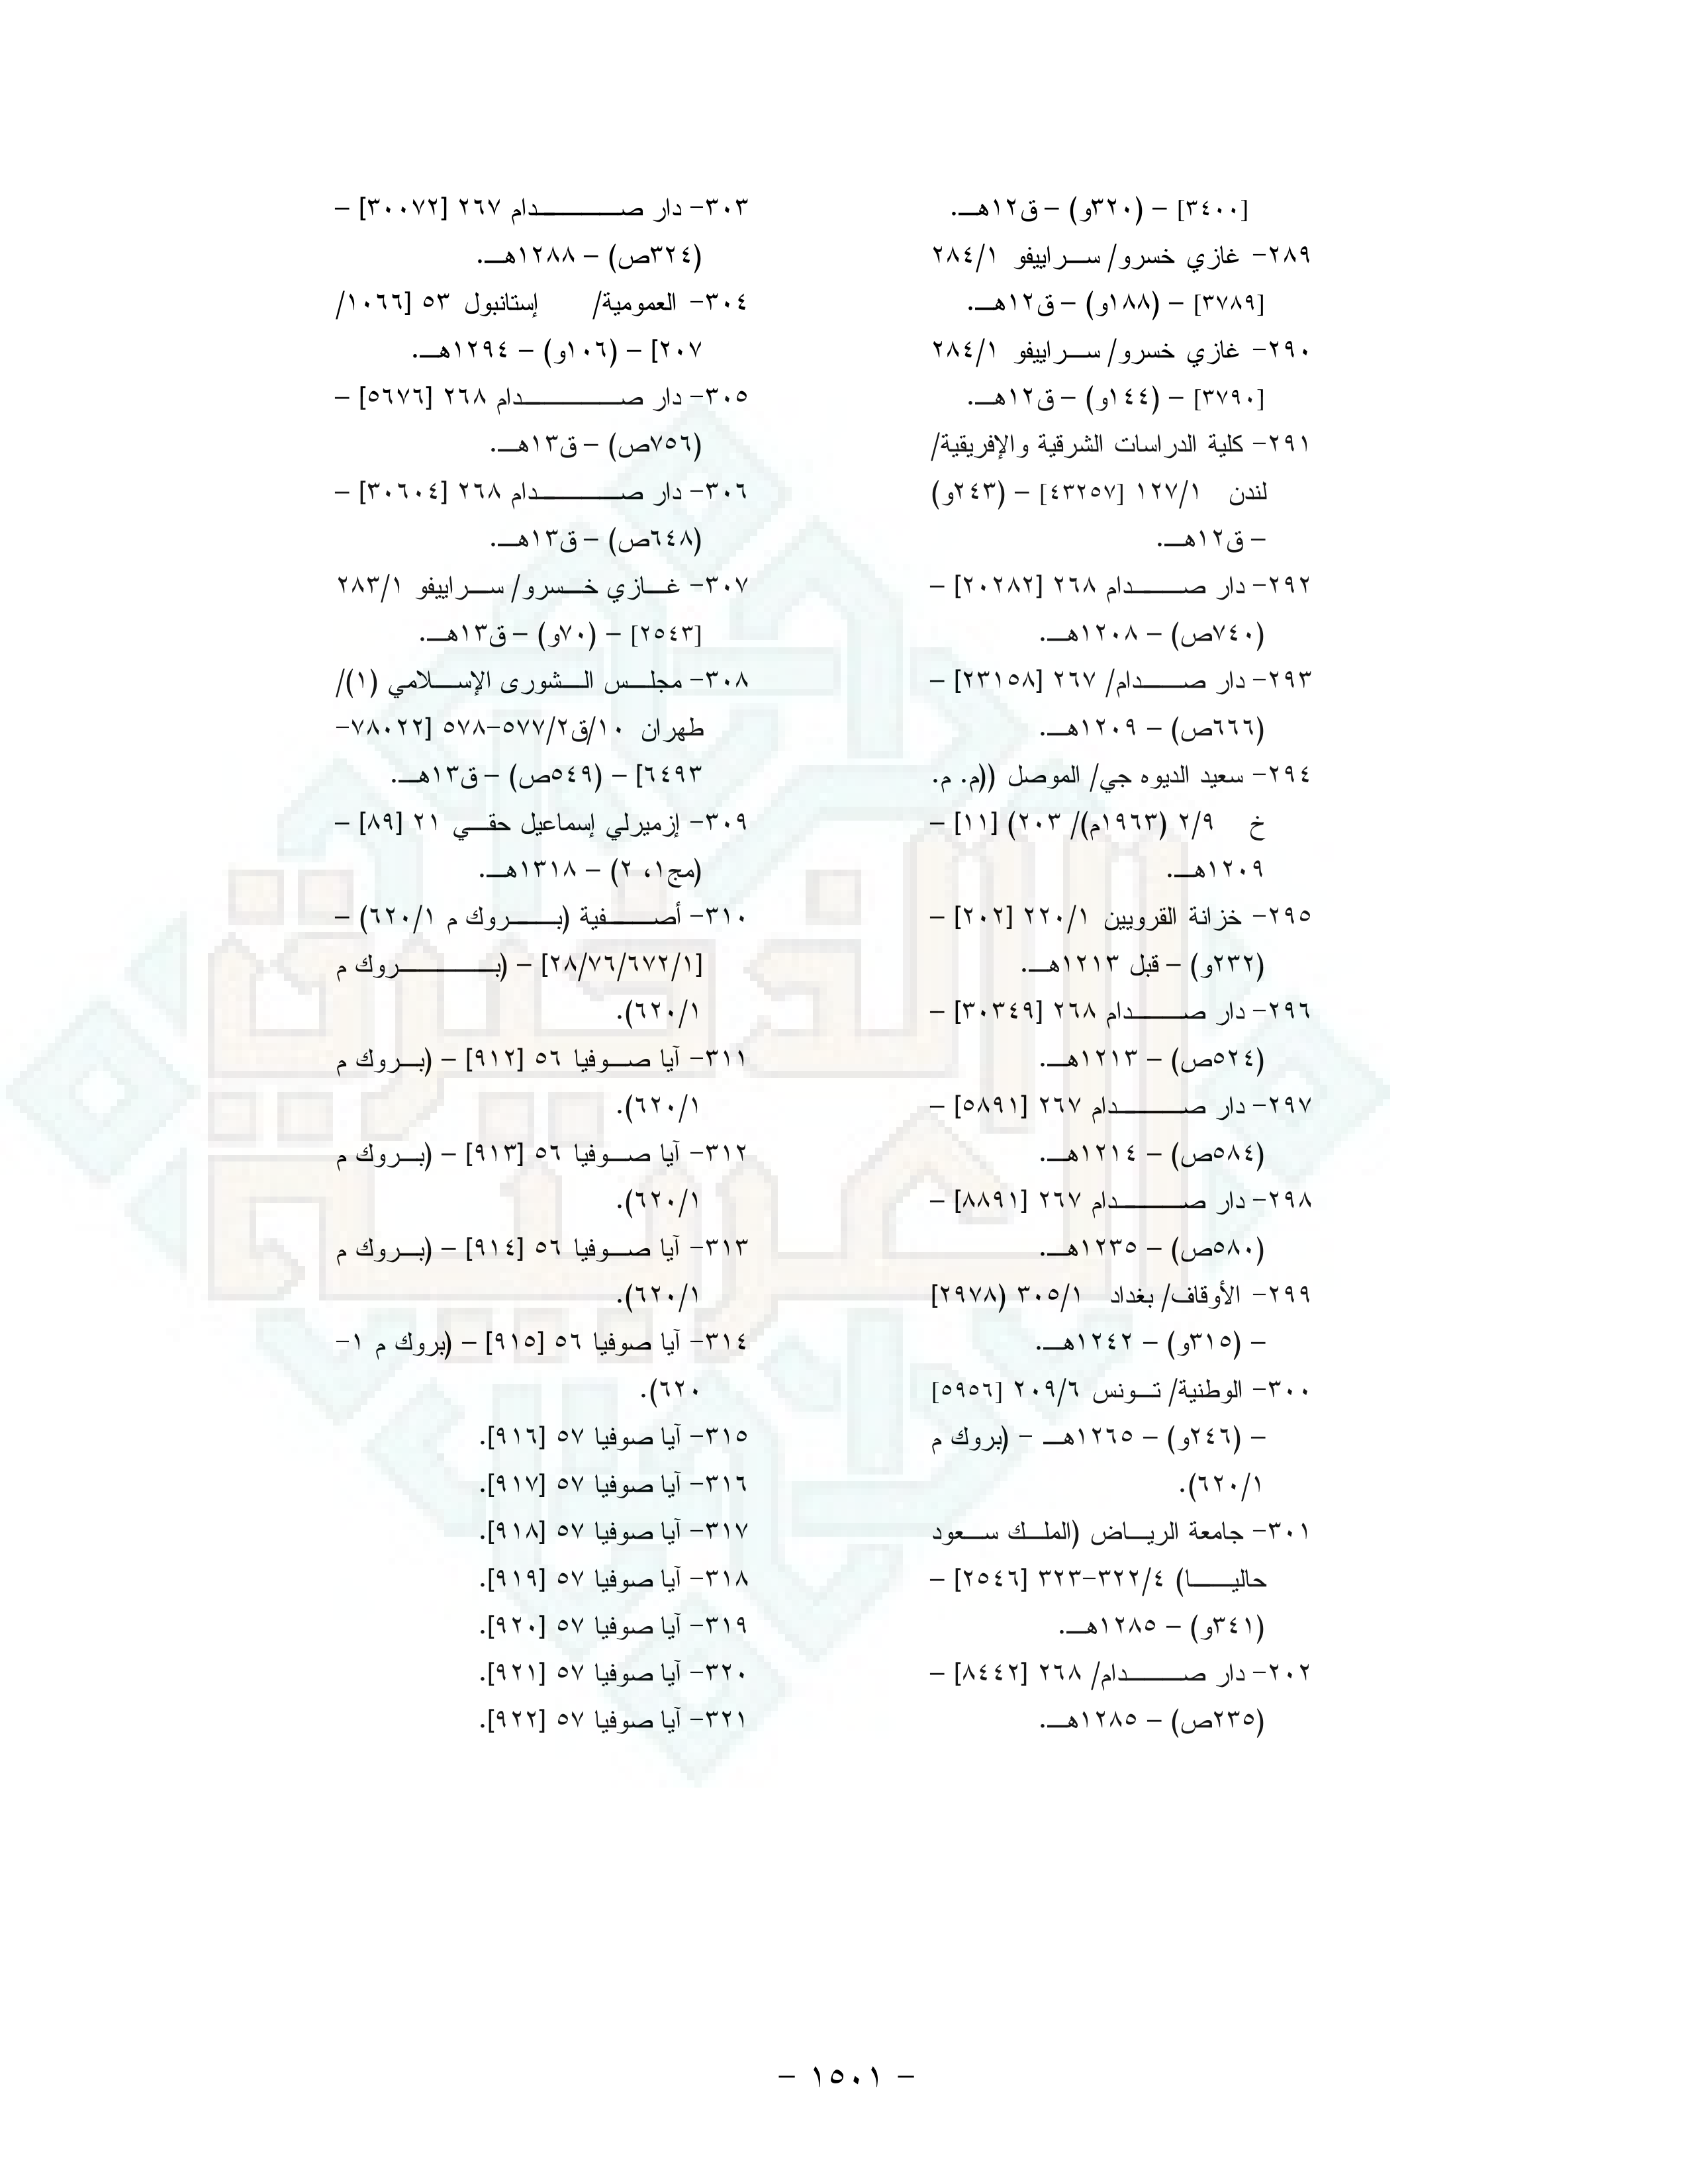 [٣٤٠٠] – (٣٢٠و) – ق١٢هـ.
٢٨٩- غازي خسرو/ سراييفو ٢٨٤/١
[٣٧٨٩] – (١٨٨و) – ق١٢هـ.
٢٩٠- غازي خسرو/ سراييفو ٢٨٤/١
[٣٧٩٠] – (١٤٤و) – ق١٢هـ.
٢٩١- كلية الدراسات الشرقية والإفريقية/
لندن ١٢٧/١ [٤٣٢٥٧] – (٢٤٣و)
– ق١٢هـ.
٢٩٢- دار صدام ٢٦٨ [٢٠٢٨٢] –
(٧٤٠ص) – ١٢٠٨هـ.
٢٩٣- دار صدام/ ٢٦٧ [٢٣١٥٨] –
(٦٦٦ص) – ١٢٠٩هـ.
٢٩٤- سعيد الديوه جي/ الموصل ((م. م.
خ ٢/٩ (١٩٦٣م)/ ٢٠٣) [١١] –
١٢٠٩هـ.
٢٩٥- خزانة القرويين ٢٢٠/١ [٢٠٢] –
(٢٣٢و) – قبل ١٢١٣هـ.
٢٩٦- دار صدام ٢٦٨ [٣٠٣٤٩] –
(٥٢٤ص) – ١٢١٣هـ.
٢٩٧- دار صدام ٢٦٧ [٥٨٩١] –
(٥٨٤ص) – ١٢١٤هـ.
٢٩٨- دار صدام ٢٦٧ [٨٨٩١] –
(٥٨٠ص) – ١٢٣٥هـ.
٢٩٩- الأوقاف/ بغداد ٣٠٥/١ (٢٩٧٨]
– (٣١٥و) – ١٢٤٢هـ.
٣٠٠- الوطنية/ تونس ٢٠٩/٦ [٥٩٥٦]
– (٢٤٦و) – ١٢٦٥هـ - (بروك م
٦٢٠/١).
٣٠١- جامعة الرياض (الملك سعود
حاليا) ٣٢٢/٤-٣٢٣ [٢٥٤٦] –
(٣٤١و) – ١٢٨٥هـ.
٢٠٢- دار صدام/ ٢٦٨ [٨٤٤٢] –
(٢٣٥ص) – ١٢٨٥هـ.
٣٠٣- دار صدام ٢٦٧ [٣٠٠٧٢] –
(٣٢٤ص) – ١٢٨٨هـ.
٣٠٤- العمومية/ إستانبول ٥٣ [١٠٦٦/
٢٠٧] – (١٠٦و) – ١٢٩٤هـ.
٣٠٥- دار صدام ٢٦٨ [٥٦٧٦] –
(٧٥٦ص) – ق١٣هـ.
٣٠٦- دار صدام ٢٦٨ [٣٠٦٠٤] –
(٦٤٨ص) – ق١٣هـ.
٣٠٧- غازي خسرو/ سراييفو ٢٨٣/١
[٢٥٤٣] – (٧٠و) – ق١٣هـ.
٣٠٨- مجلس الشورى الإسلامي (١)/
طهران ١٠/ق٥٧٧/٢-٥٧٨ [٧٨٠٢٢-
٦٤٩٣] – (٥٤٩ص) – ق١٣هـ.
٣٠٩- إزميرلي إسماعيل حقي ٢١ [٨٩] –
(مج١، ٢) – ١٣١٨هـ.
٣١٠- أصفية (بروك م ٦٢٠/١) –
[٢٨/٧٦/٦٧٢/١] – (بروك م
٦٢٠/١).
٣١١- آيا صوفيا ٥٦ [٩١٢] – (بروك م
٦٢٠/١).
٣١٢- آيا صوفيا ٥٦ [٩١٣] – (بروك م
٦٢٠/١).
٣١٣- آيا صوفيا ٥٦ [٩١٤] – (بروك م
٦٢٠/١).
٣١٤- آيا صوفيا ٥٦ [٩١٥] – (بروك م ١-
٦٢٠).
٣١٥- آيا صوفيا ٥٧ [٩١٦].
٣١٦- آيا صوفيا ٥٧ [٩١٧].
٣١٧- آيا صوفيا ٥٧ [٩١٨].
٣١٨- آيا صوفيا ٥٧ [٩١٩].
٣١٩- آيا صوفيا ٥٧ [٩٢٠].
٣٢٠- آيا صوفيا ٥٧ [٩٢١].
٣٢١- آيا صوفيا ٥٧ [٩٢٢].
– ١٥٠١ –
الذخيرة
العربية